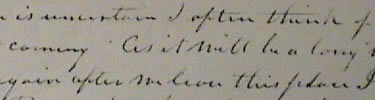 is uncertain I often think of
coming As it will be a long
again after we leave this place I